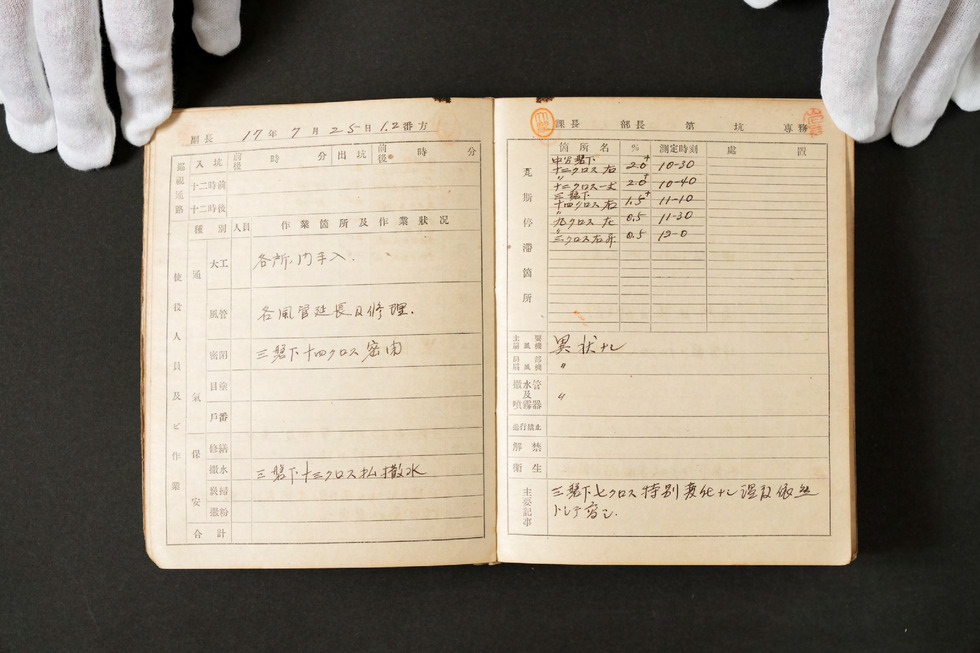 副長 17年 7月 25日 1.2番方
巡視通路 入坑 前後 時 分 出坑 前後 時 分
十二時前
十二時後
使役人員及ビ作業
種別 人員 作業箇所及作業狀況
通氣
大工 各所.内手入.
風管 各風管延長及修理.
密閉 三盤下十四クロス密閉
目塗
戸番
保安
修繕
撒水 三盤下十三クロス払撒水
炭掃
撒粉
合計
課長 部長 第 坑 專務
瓦斯停滯箇所
箇所名 % 測定時刻 處置
十二クロス右 2.0+ 10-30
〃
2.0+ 10-40
三盤下
十四クロス右 1.5+ 11-10
〃
九クロス左 0.5 11-30
〃
三クロス右 0.5 12-0
主要扇風機 異状ナシ
局部扇風機 〃
撒水管及噴霧器 〃
通行禁止
解禁
衛生
主要記事 三盤下七クロス特別変化ナシ 温度依然
トシテ高シ.